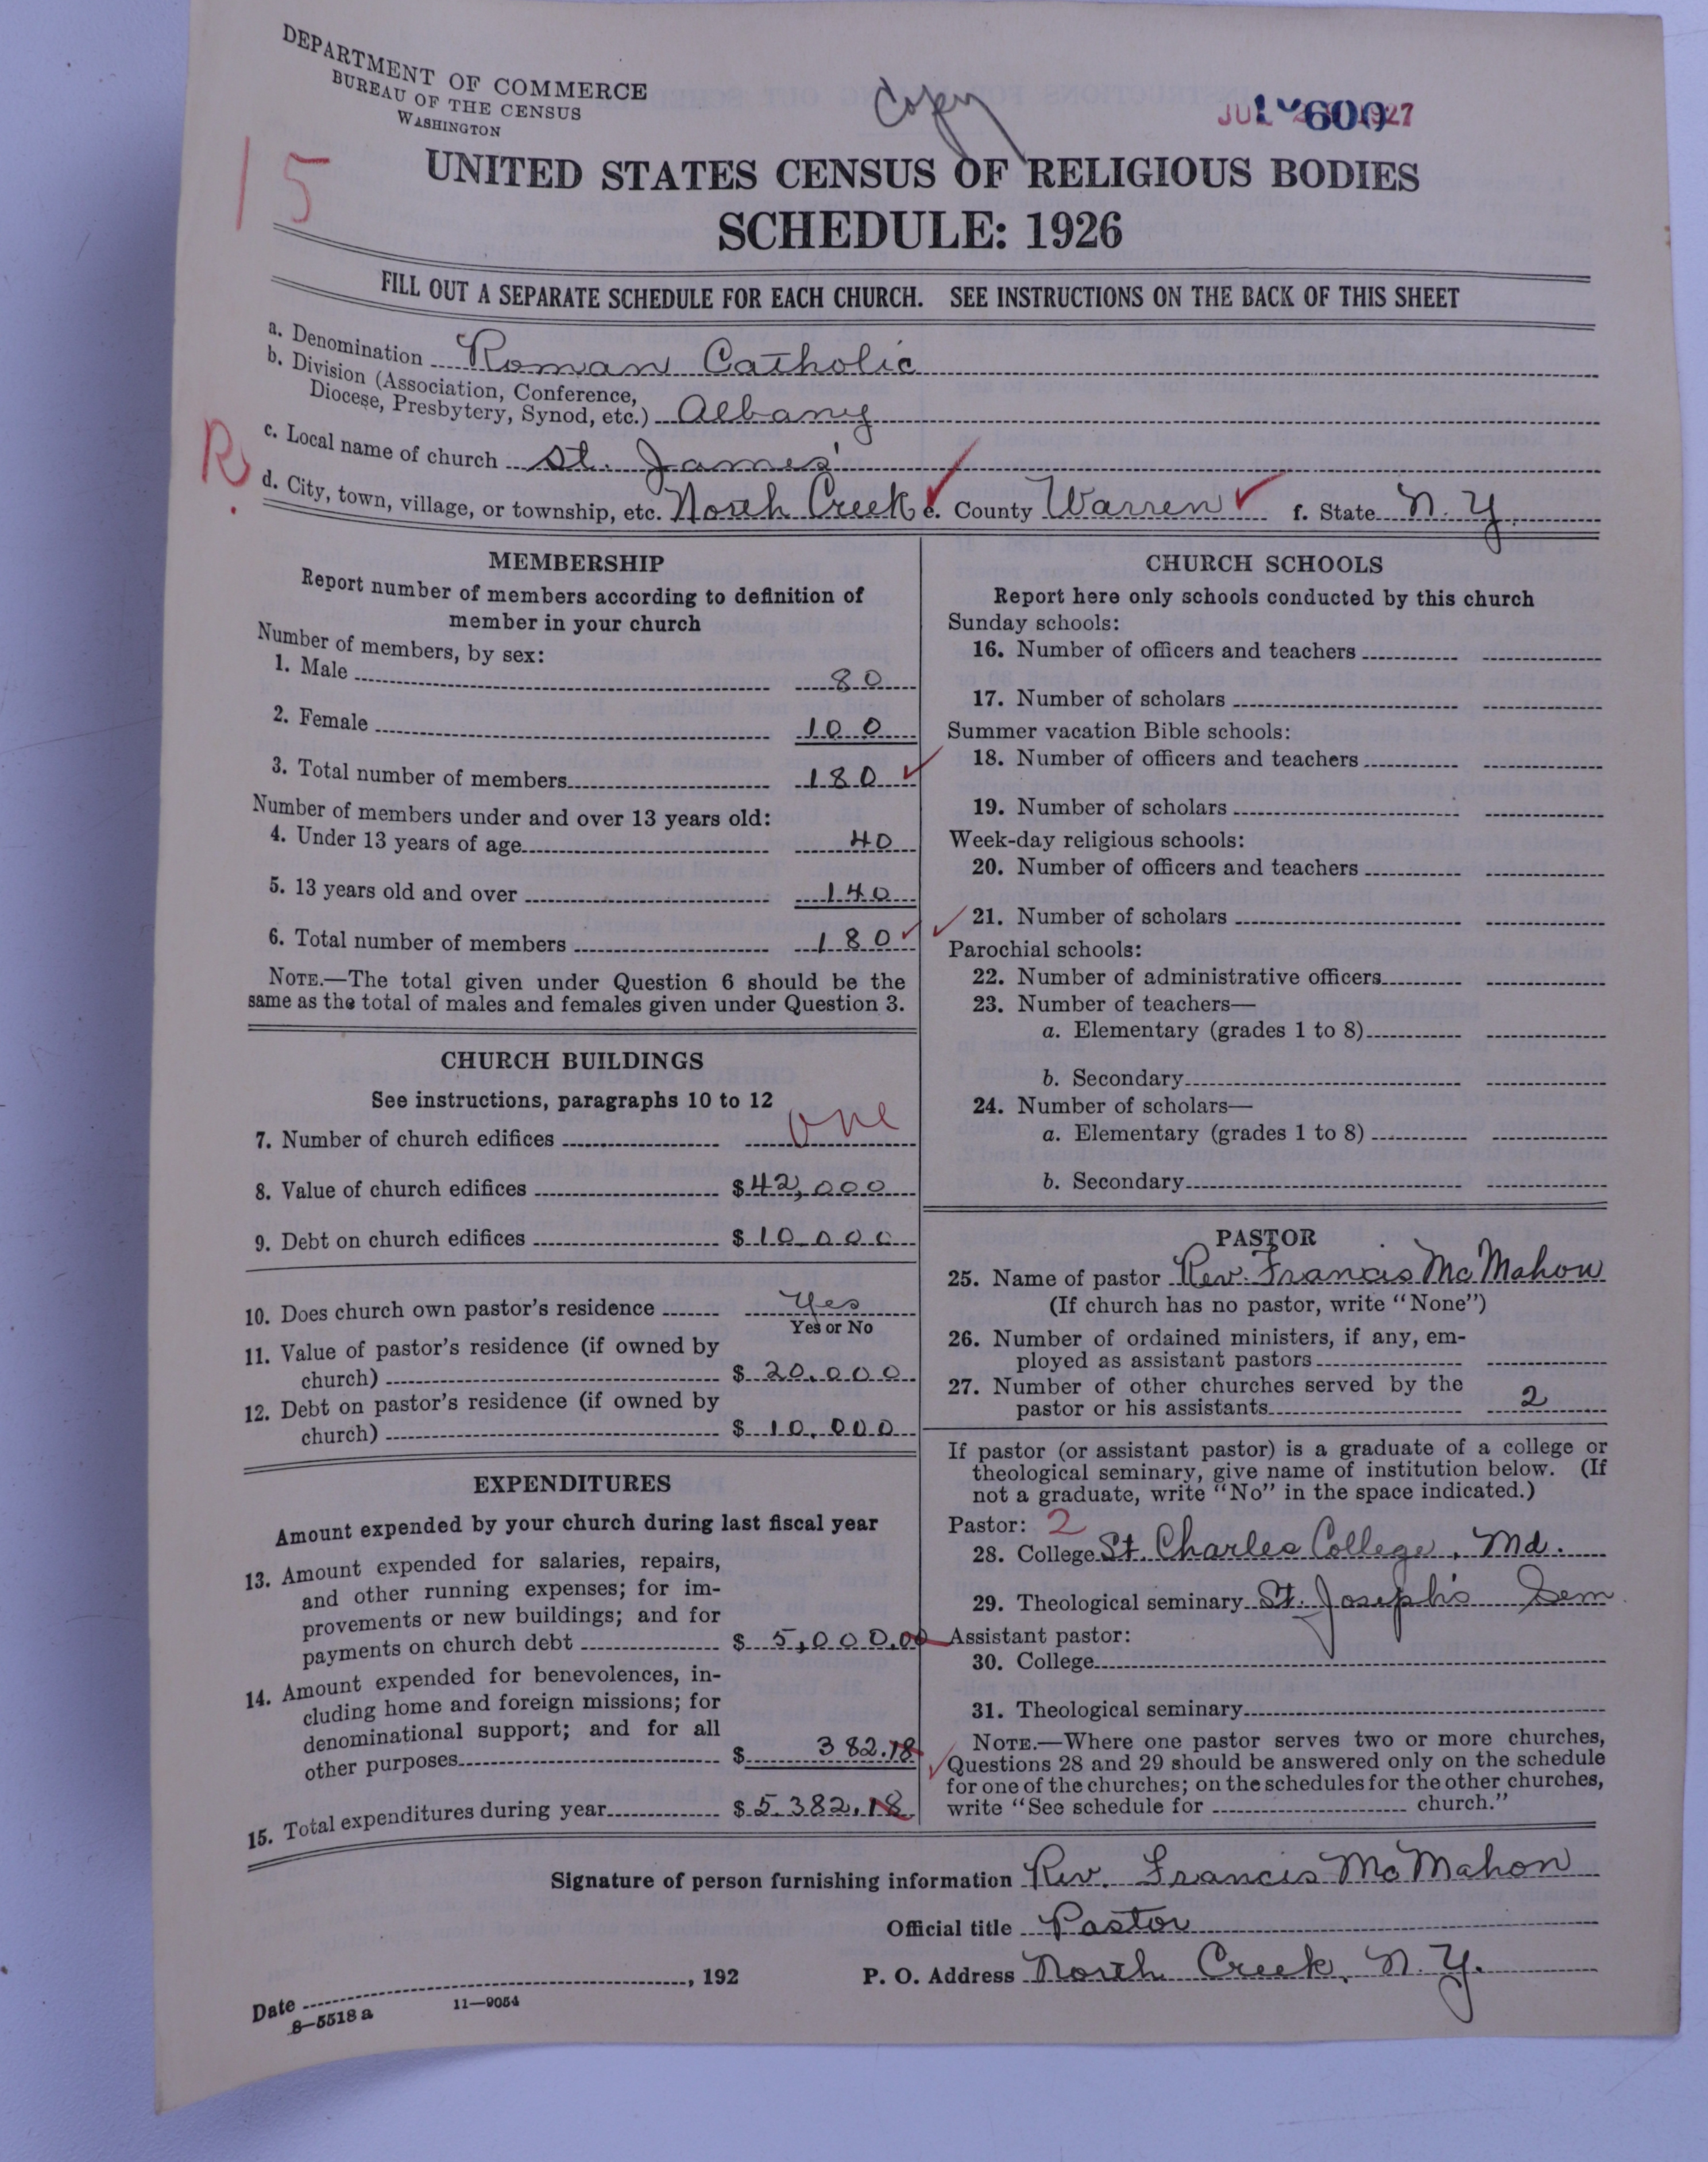 DEPARTMENT OF COMMERCE
BUREAU OF THE CENSUS
WASHINGTON
Copy
600
1927
15
UNITED STATES CENSUS OF RELIGIOUS BODIES
SCHEDULE: 1926
FILL OUT A SEPARATE SCHEDULE FOR EACH CHURCH. SEE INSTRUCTIONS ON THE BACK OF THIS SHEET
a. Denomination Roman Catholic
b. Division (Association, Conference,
Diocese, Presbytery, Synod, etc.) Albany
c. Local name of church St. James'
R.
d. City, town, village, or township, etc. North Creek e. County Warren f. State N. Y.
MEMBERSHIP
Report number of members according to definition of
member in your church
Number of members, by sex:
1. Male 80
2. Female 100
3. Total number of members 180
Number of members under and over 13 years old:
4. Under 13 years of age 40
5. 13 years old and over 140
6. Total number of members 180
NOTE.—The total given under Question 6 should be the
same as the total of males and females given under Question 3.
CHURCH BUILDINGS
See instructions, paragraphs 10 to 12
7. Number of church edifices one
8. Value of church edifices $42,000
9. Debt on church edifices $10.000
10. Does church own pastor's residence Yes
Yes or No
11. Value of pastor's residence (if owned by
church) $20.000
12. Debt on pastor's residence (if owned by
church) $10.000
EXPENDITURES
Amount expended by your church during last fiscal year
13. Amount expended for salaries, repairs,
and other running expenses; for im-
provements or new buildings; and for
payments on church debt $5,000.00
14. Amount expended for benevolences, in-
cluding home and foreign missions; for
denominational support; and for all
other purposes $382.18
15. Total expenditures during year $5.382.18
CHURCH SCHOOLS
Report here only schools conducted by this church
Sunday schools:
16. Number of officers and teachers
17. Number of scholars
Summer vacation Bible schools:
18. Number of officers and teachers
19. Number of scholars
Week-day religious schools:
20. Number of officers and teachers
21. Number of scholars
Parochial schools:
22. Number of administrative officers
23. Number of teachers—
a. Elementary (grades 1 to 8)
b. Secondary
24. Number of scholars—
a. Elementary (grades 1 to 8)
b. Secondary
PASTOR
25. Name of pastor Rev. Francis McMahon
(If church has no pastor, write "None")
26. Number of ordained ministers, if any, em-
ployed as assistant pastors
27. Number of other churches served by the
pastor or his assistants 2
If pastor (or assistant pastor) is a graduate of a college or
theological seminary, give name of institution below. (If
not a graduate, write "No" in the space indicated.)
Pastor: 2
28. College St. Charles College, Md.
29. Theological seminary St. Joseph's Sem
Assistant pastor:
30. College
31. Theological seminary
NOTE.—Where one pastor serves two or more churches,
Questions 28 and 29 should be answered only on the schedule
for one of the churches; on the schedules for the other churches,
write "See schedule for church."
Signature of person furnishing information Rev. Francis McMahon
Official title Pastor
Date , 192 P. O. Address North Creek, N. Y.
8—5518 a 11—9054